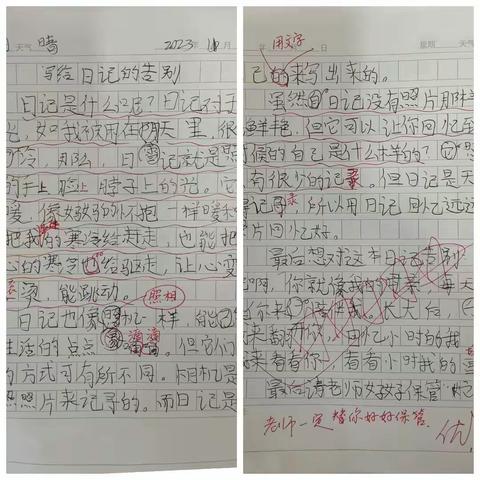 天气 晴 2023 月
写给日记的告别
日记是什么呢？日记对于
如我被困在阴天里，很
冷，那么，日记就是照
手上 脸上 脖子上的光。它
暖，像妈妈的怀抱一样暖和
把我的寒冷给赶走，也能把
心的寒冷也给驱走，让心变
滚烫，能跳动。
照相
日记也像照相机一样，能
生活的点点滴滴。但它们
的方式可有所不同。相机是
照照片来记录的。而日记是
用文字
天气 日 星期 天气
己的来写出来的。
虽然日记没有照片那样
鲜艳，但它可以让你回忆至
时候的自己是什么样的？
有很少的记录。但日记是天
记录，所以用日记回忆远远
照片回忆好。
最后想对这本日记告别
你就像我的 每天
你来 长大后，
来翻开你，回忆小时的我
来看看你，看看小时我的
最后请老师好好保管
老师一定替你好好保管。
优